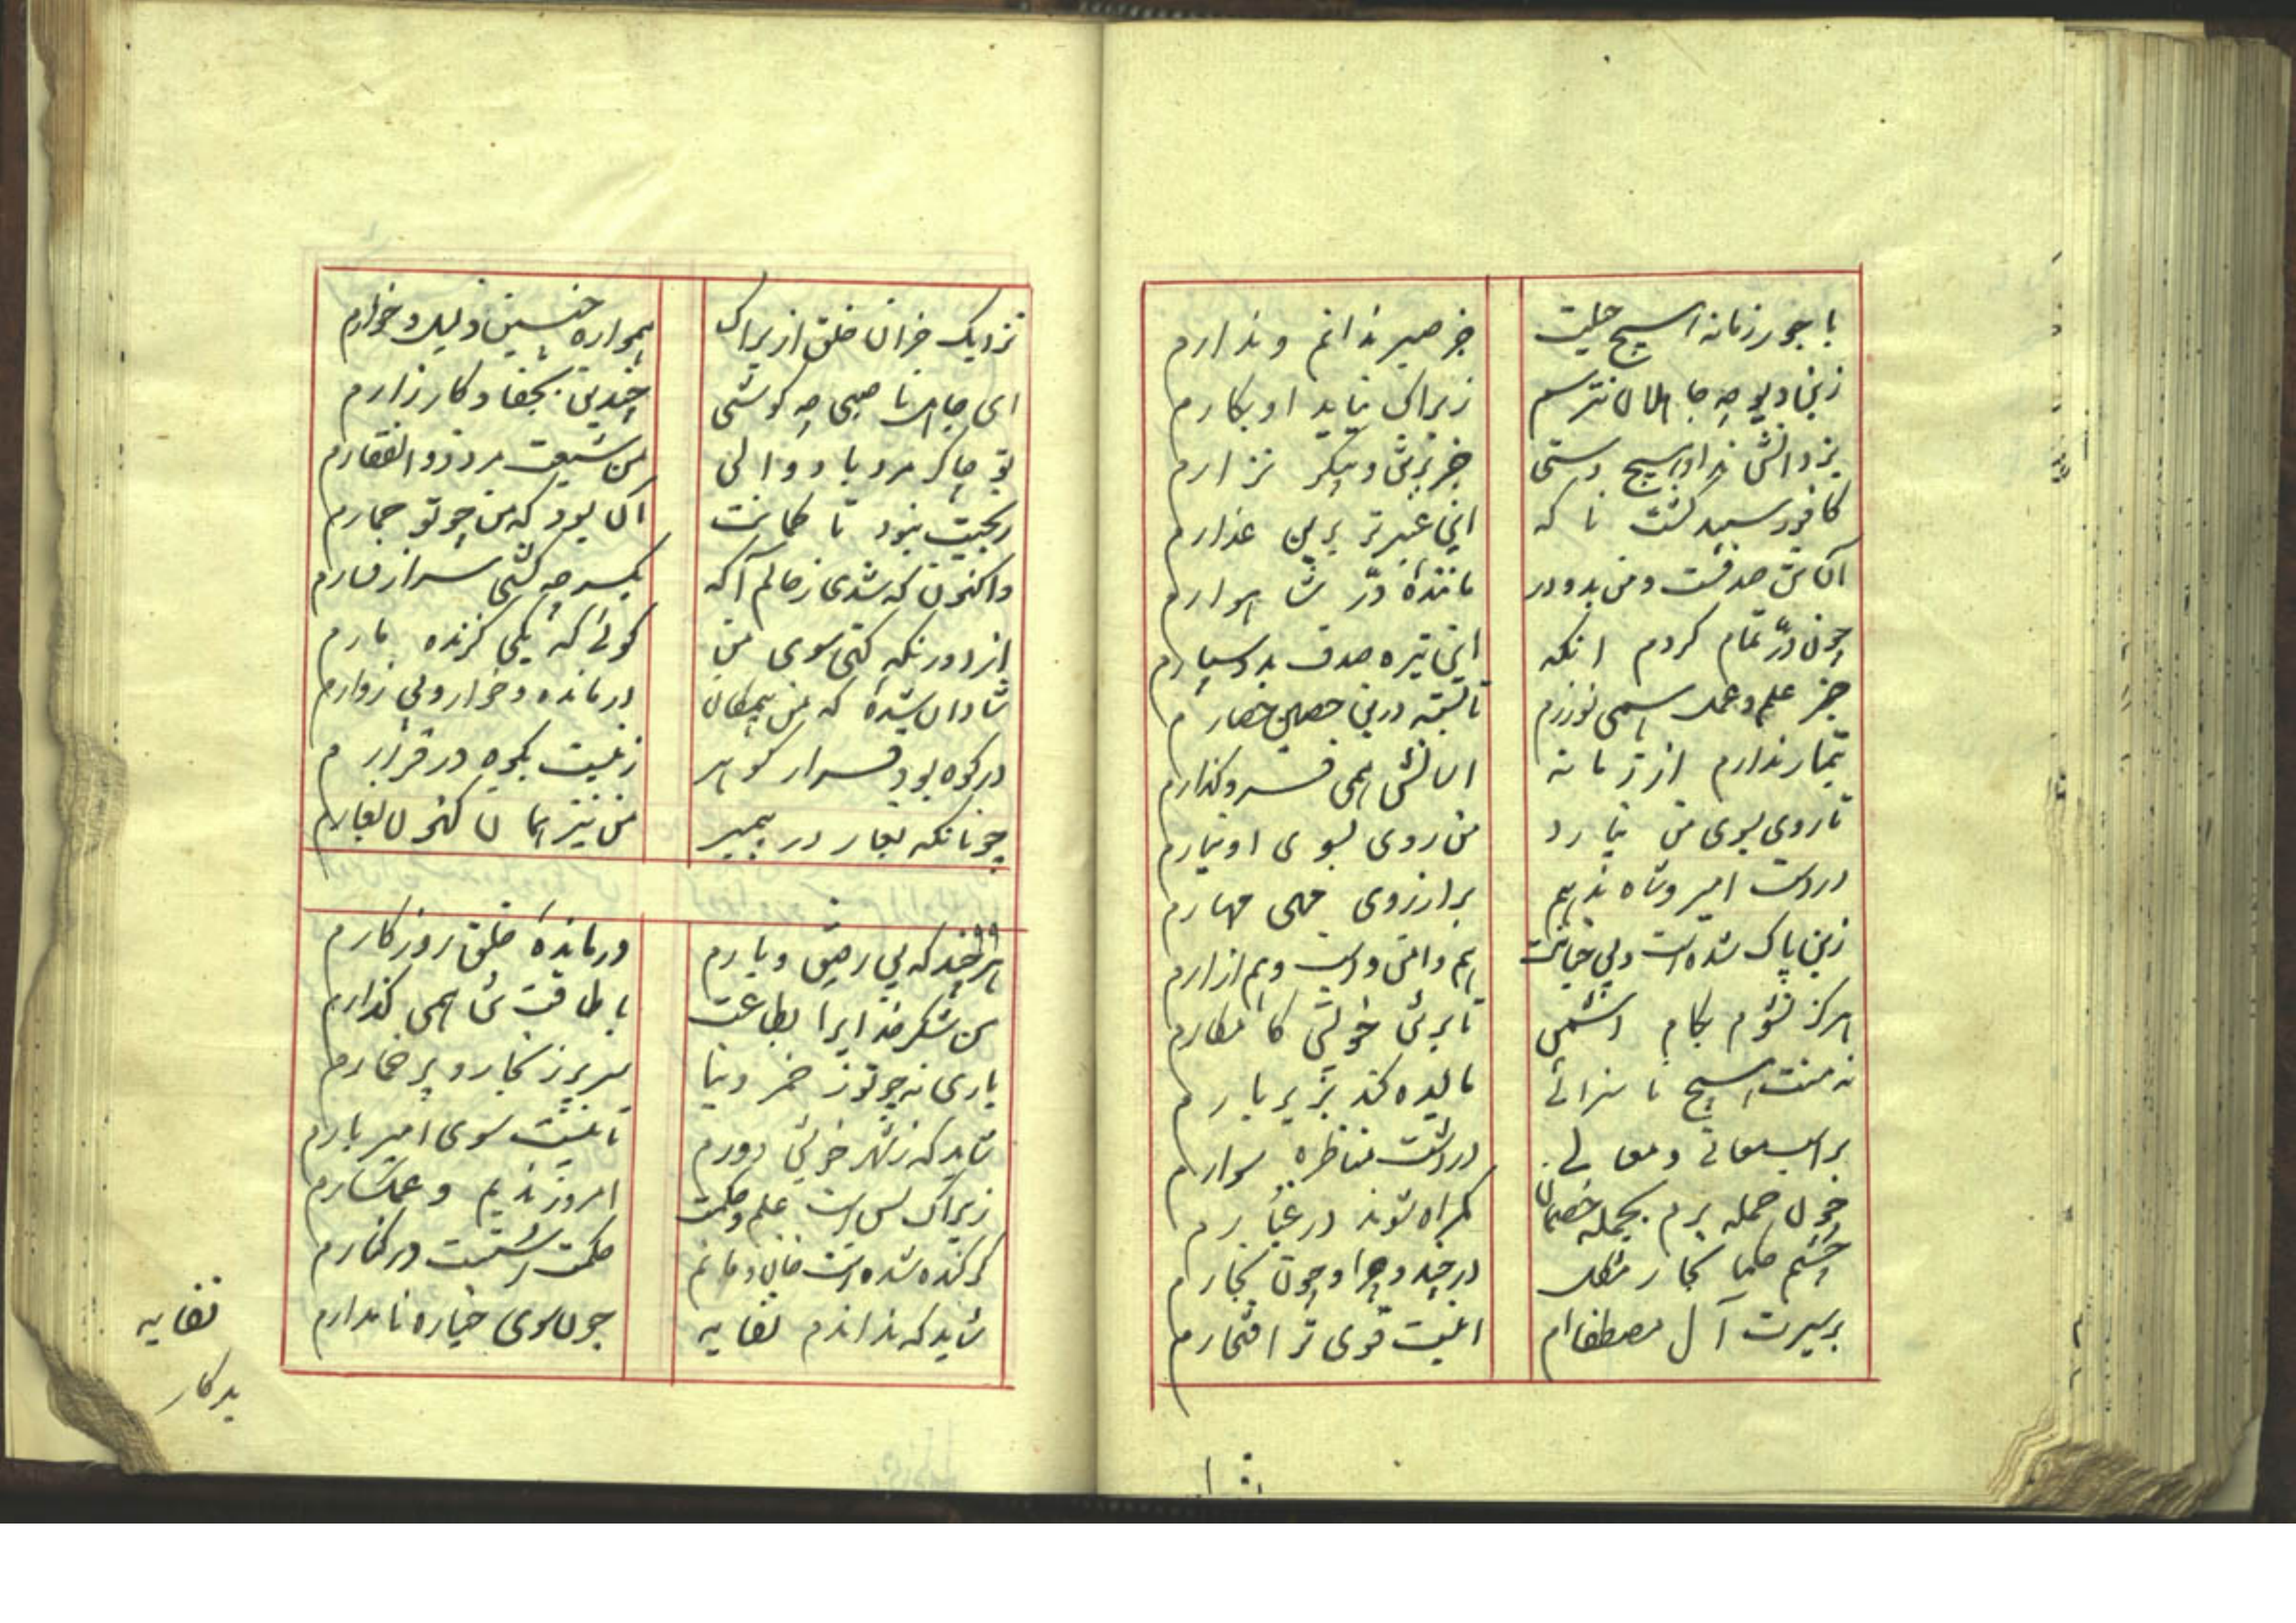 با جور زمانه هیچ حیلت جز صبر ندانم و ندارم
زین دیو چه جاهلان نترسم زیراک نیاید او بکارم
یزدانش نداد هیچ دستی جز برتن و پیکر نزارم
کافور سپید گشت ناگه این عنبر تر برین عذارم
آن تن صدفست و من بدو در مانندهٔ درّ شاهوارم
چون درّ تمام کردم انکه این تیره صدف بدو سپارم
جز علم و عمل همی نورزم تا بسته درین حصین حصارم
تیمار ندارم از زمانه اسانش همی فرو گذارم
تا روی بسوی من نیارد من روی بسوی او نیارم
در دست امیر و شاه ندهم بر ارزوی مهی مهارم
زین پاک شده است و بی خیانت هم دامن و دست و هم ازارم
هرگز نشوم بکام دشمن تا برتن خویش کامکارم
نه منت هیچ ناسزائی مالیده کند بزیر بارم
بر اسب معانی و معالی در دشت مناظره سوارم
چون حمله برم بجمله خصمان گمراه شوند در غبارم
چشم حکما بخار مشکل در چند و چرا و چون بخارم
بر سیرت آل مصطفی ام اینست قوی تر افتخارم
نزدیک خران خلق ازیراک همواره چنین ذلیل و خوارم
ای جاهل ناصبی چه کوشی چندین بجفا و کارزارم
تو چاکر مرد با دوالی من شیعت مرد ذوالفقارم
رنجیت نبود تا گمانت آن بود که من چو تو حمارم
واکنون که شدی ز حالم آگه یکسر چه کشی سر از فسارم
از دور نگه کنی سوی من گوئی که یکی گزنده مارم
شادان شدهٔ که من بیمکان درمانده و خوار و بی زوارم
در کوه بود قرار گوهر زینست بکوه در قرارم
چونانکه بغار در پیمبر من نیز همان کنون بغارم
هر چند که بی رفیق و یارم درماندهٔ خلق روزگارم
من شکر خدایرا بطاعت با طاقت تن همی گذارم
باری نه چو تو ز خمر دنیا سر پر ز بخار و پر خمارم
شاید که ز شهر خویش دورم تا نیست سوی امیر بارم
زیراک بس است علم و حکمت امروز ندیم و غمگسارم
گر کنده شده است خان و مانم حکمت رسته است در کنارم
شاید که نداندم نفایه چون سوی خیاره نامدارم
نفایه
بدکار